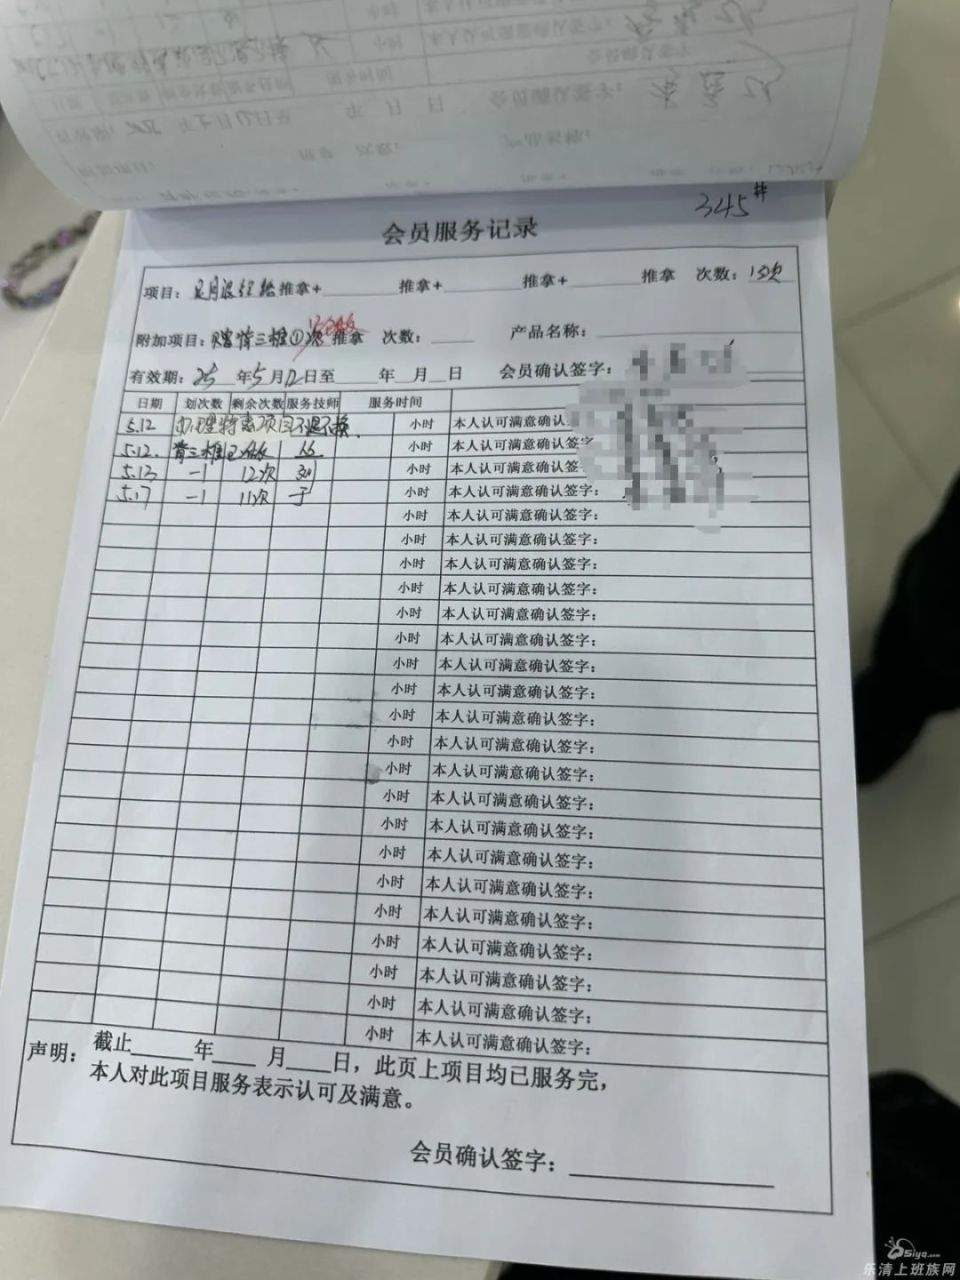 345#
会员服务记录
项目： 推拿+ 推拿+ 推拿+ 推拿 次数：13次
附加项目：赠背三推①次 已做 推拿 次数： 产品名称：
有效期：25年5月12日至 年 月 日 会员确认签字：
日期 划次数 剩余次数 服务技师 服务时间
5.12 办理特惠项目不退不换. 小时 本人认可满意确认
5.12. 背三推已做 小时 本人认可满意确认签字
5.13 -1 12次 刘 小时 本人认可满意确认签
5.17 -1 11次 于 小时 本人认可满意确认签字：
小时 本人认可满意确认签字：
小时 本人认可满意确认签字：
小时 本人认可满意确认签字：
小时 本人认可满意确认签字：
小时 本人认可满意确认签字：
小时 本人认可满意确认签字：
小时 本人认可满意确认签字：
小时 本人认可满意确认签字：
小时 本人认可满意确认签字：
小时 本人认可满意确认签字：
小时 本人认可满意确认签字：
小时 本人认可满意确认签字：
小时 本人认可满意确认签字：
小时 本人认可满意确认签字：
小时 本人认可满意确认签字：
小时 本人认可满意确认签字：
小时 本人认可满意确认签字：
小时 本人认可满意确认签字：
小时 本人认可满意确认签字：
小时 本人认可满意确认签字：
声明：截止 年 月 日，此页上项目均已服务完，
本人对此项目服务表示认可及满意。
会员确认签字：
0siyq.com
乐清上班族网